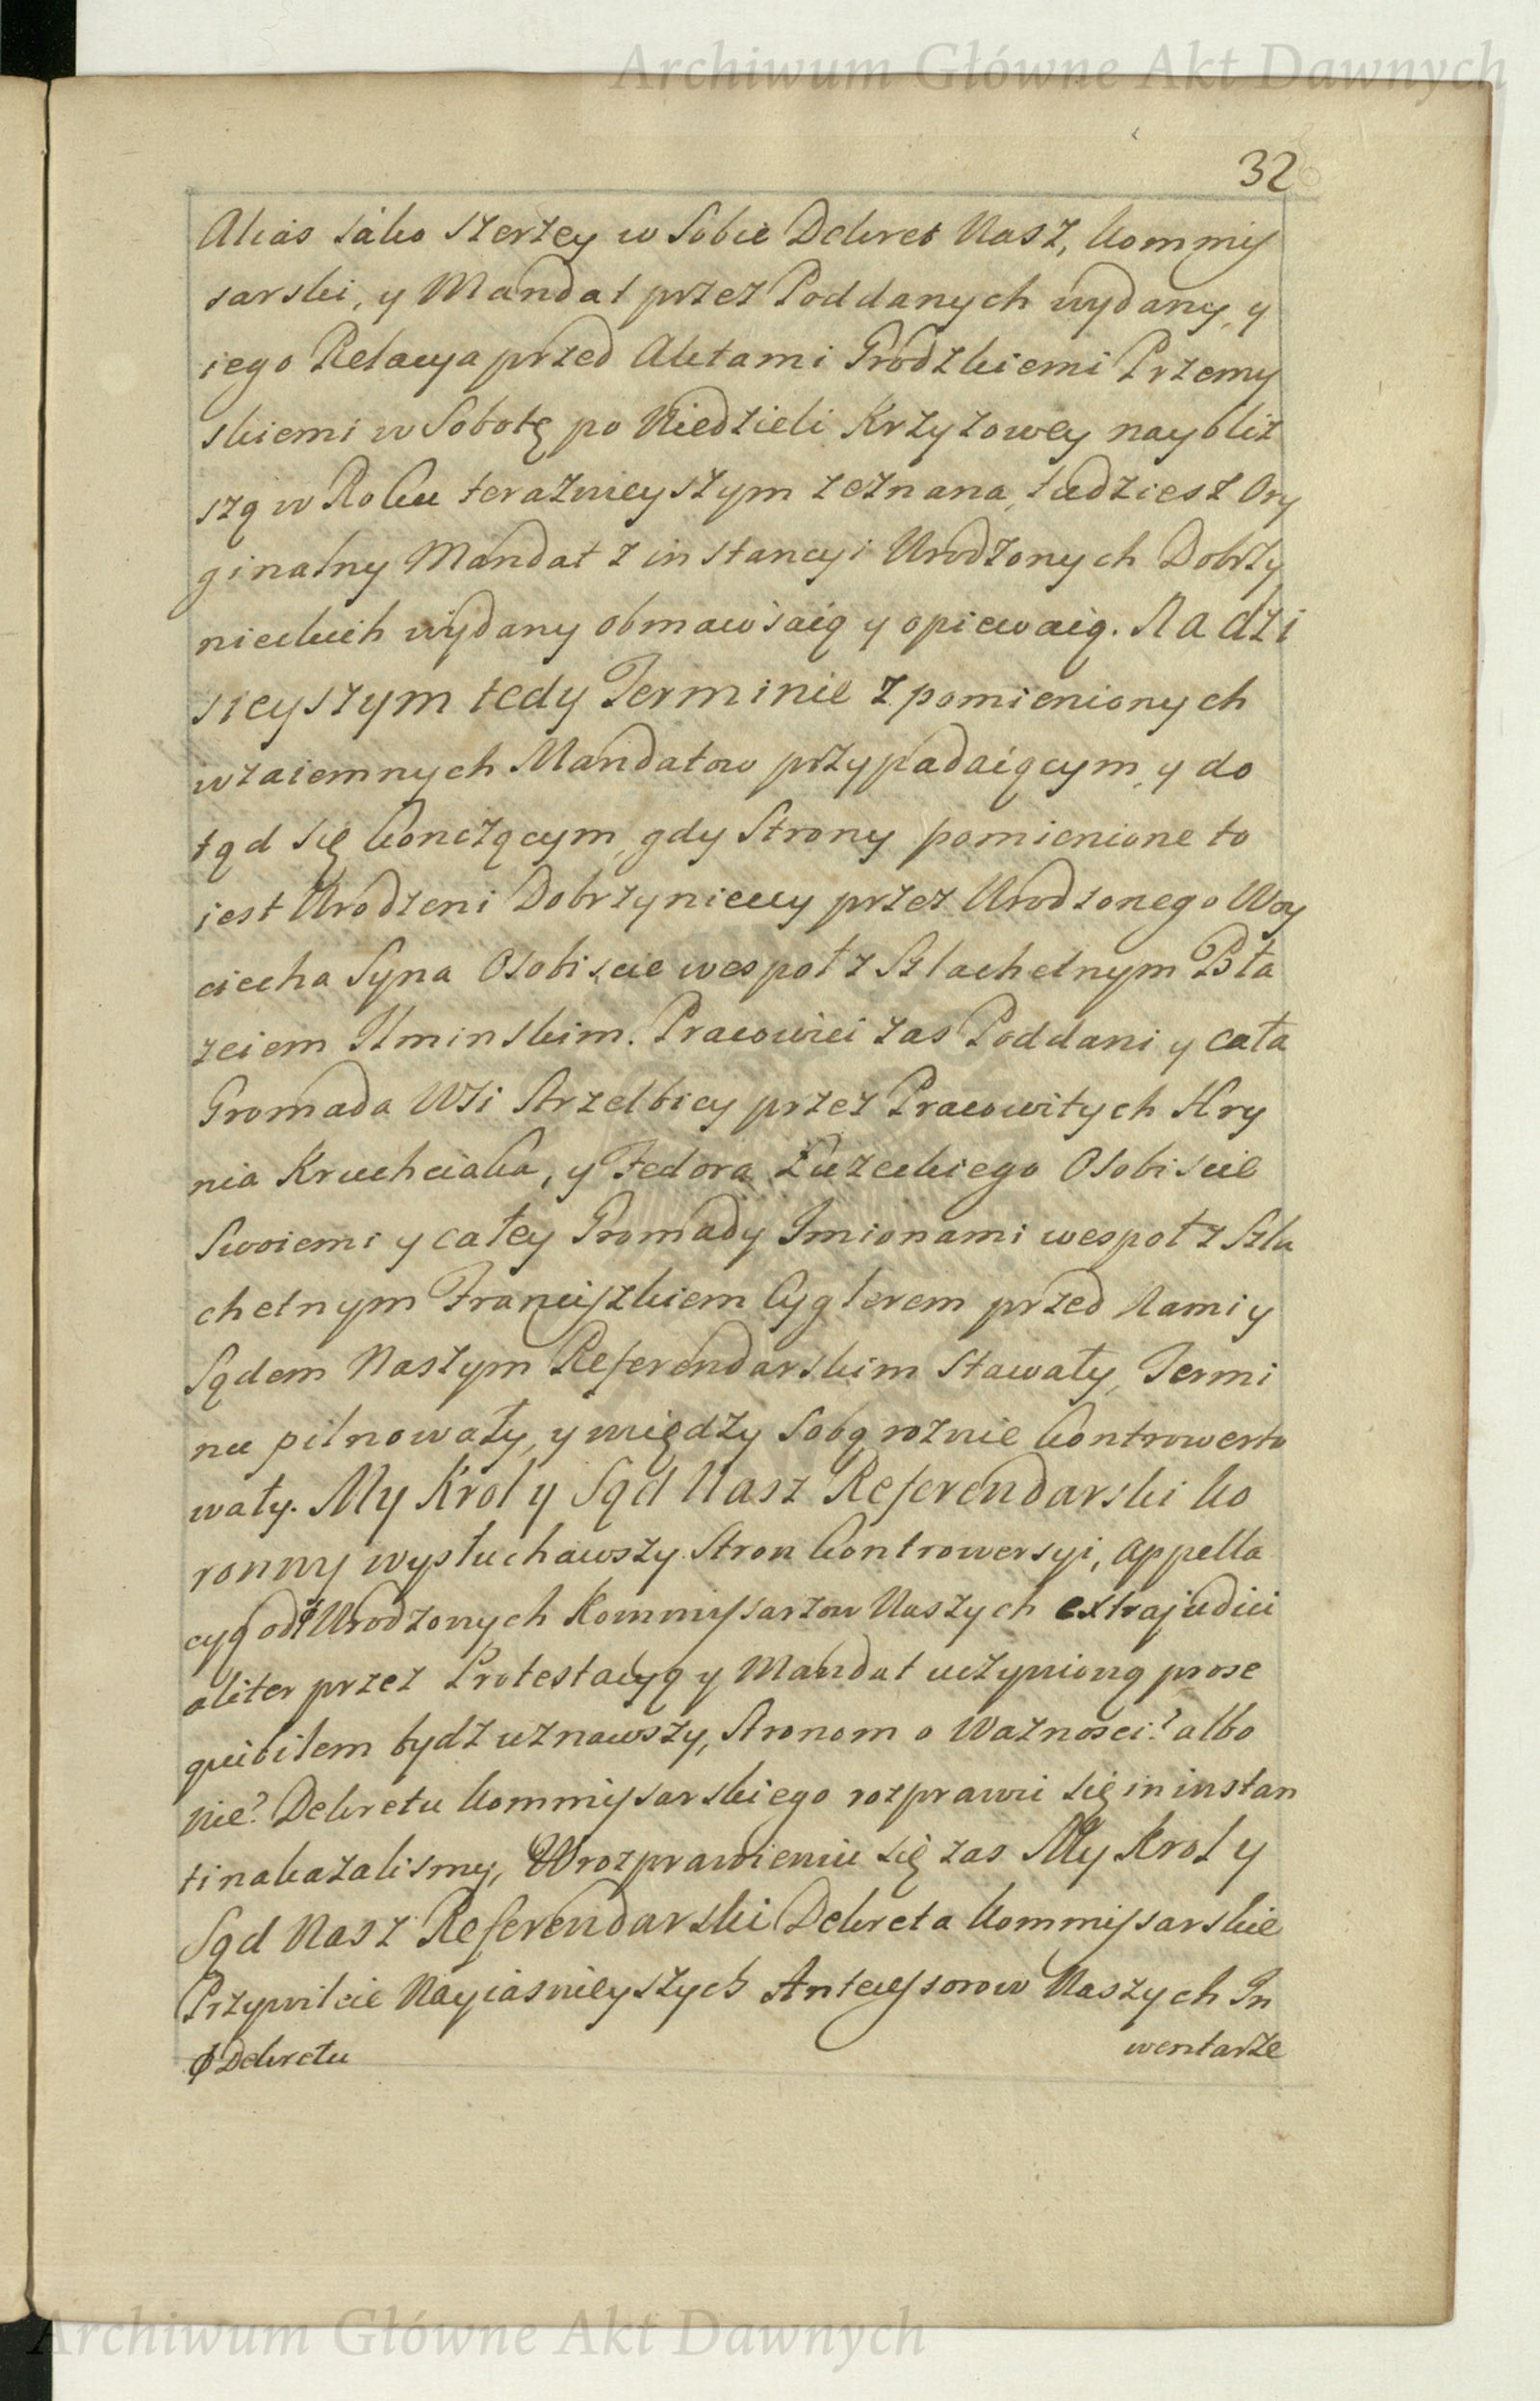 Archiwum Główne Akt Dawnych
32
Alias iako szerzey w Sobie Dekret Nasz, kommis
sarski, y Mandat przez Poddanych wydany, y
iego Relacya przed Aktami Grodzkiemi Przemy
skiemi w Sobotę po Niedzieli Krzyżowey naybliż
szą w Roku teraznieyszym zeznana, tudziesz Ory
ginalny Mandat z instancyi Urodzonych Dobrzy
nieckich wydany obmawiaią y opiewaią. Na dzi
sieyszym tedy Terminie z pomienionych
wzaiemnych Mandatow przypadaiącym, y do
tąd się kończącym, gdy Strony pomienione to
iest Urodzeni Dobrzynieccy przez Urodzonego Woy
ciecha Syna Osobiscie wespoł z Szlachetnym Bła
zeiem Ilminskim. Pracowici zas Poddani y cała
Gromada Wsi Strzelbicy przez Pracowitych Hry
nia Kruchciaka, y Fedora Łuzeckiego Osobiscie
Swoiemi y całey Gromady Imionami wespoł z Szla
chetnym Franciszkiem Cyglerem przed Nami y
Sądem Naszym Referendarskim Stawały, Termi
nu pilnowały, y między Sobą roznie kontrowerto
wały. My Krol y Sąd Nasz Referendarski ko
ronny wysłuchawszy Stron kontrowersyi, appella
cyą od ϕ Urodzonych Kommissarzow Naszych extrajudici
aliter przez Protestacyą y Mandat uczynioną prose
quibilem bydz uznawszy, Stronom o Ważnosci? albo
nie? Dekretu kommissarskiego rozprawic się in instan
ti nakazalismy, W rozprawieniu się zas My Krol y
Sąd Nasz Referendarski Dekreta kommissarskie
Przywileie Nayiasnieyszych Antecessorow Naszych In
ϕ Dekretu
wentarze
Archiwum Główne Akt Dawnych